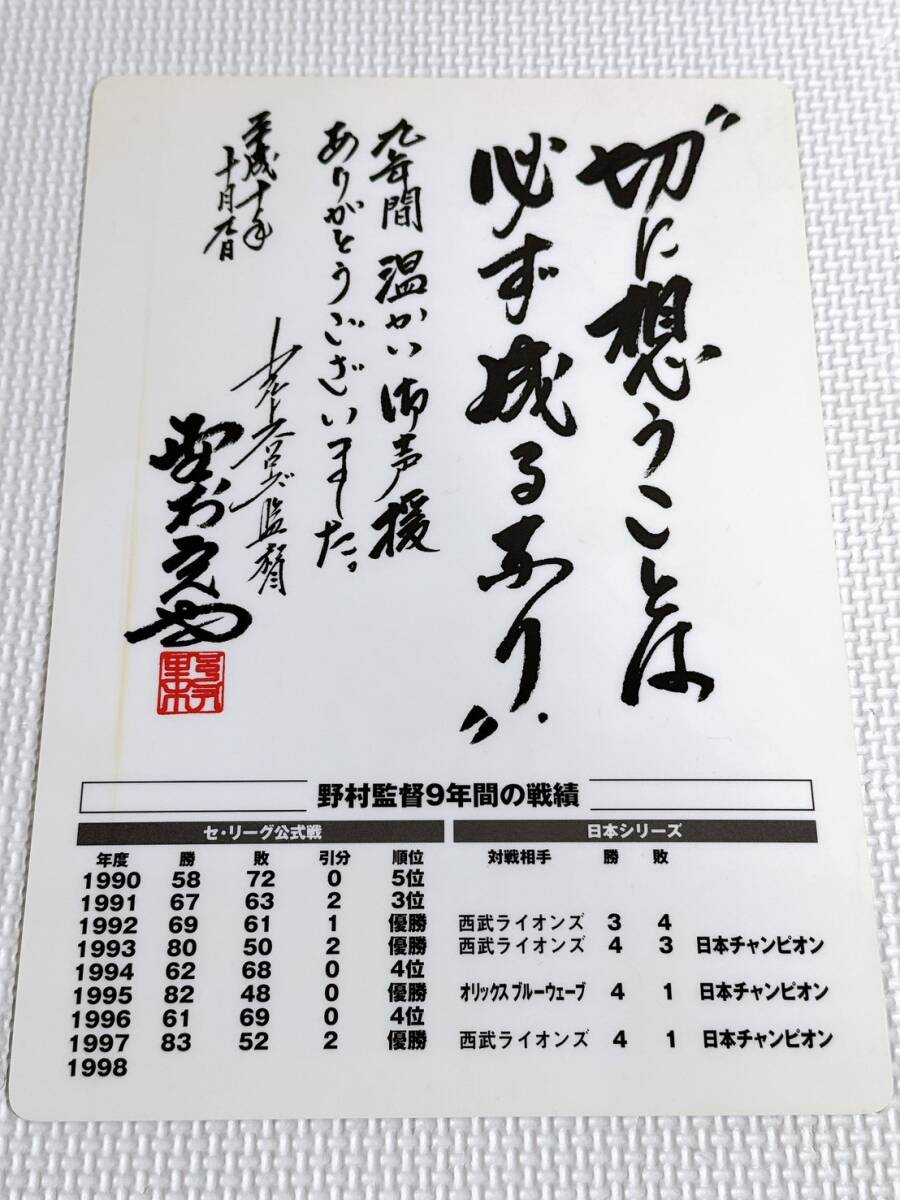 “切に想うことは
必ず成るなり”
九年間 温かい御声援
ありがとうございました。
平成十年
十月
監督
野村
野村監督9年間の戦績
セ・リーグ公式戦 日本シリーズ
年度 勝 敗 引分 順位 対戦相手 勝 敗
1990 58 72 0 5位
1991 67 63 2 3位
1992 69 61 1 優勝 西武ライオンズ 3 4
1993 80 50 2 優勝 西武ライオンズ 4 3 日本チャンピオン
1994 62 68 0 4位
1995 82 48 0 優勝 オリックスブルーウェーブ 4 1 日本チャンピオン
1996 61 69 0 4位
1997 83 52 2 優勝 西武ライオンズ 4 1 日本チャンピオン
1998